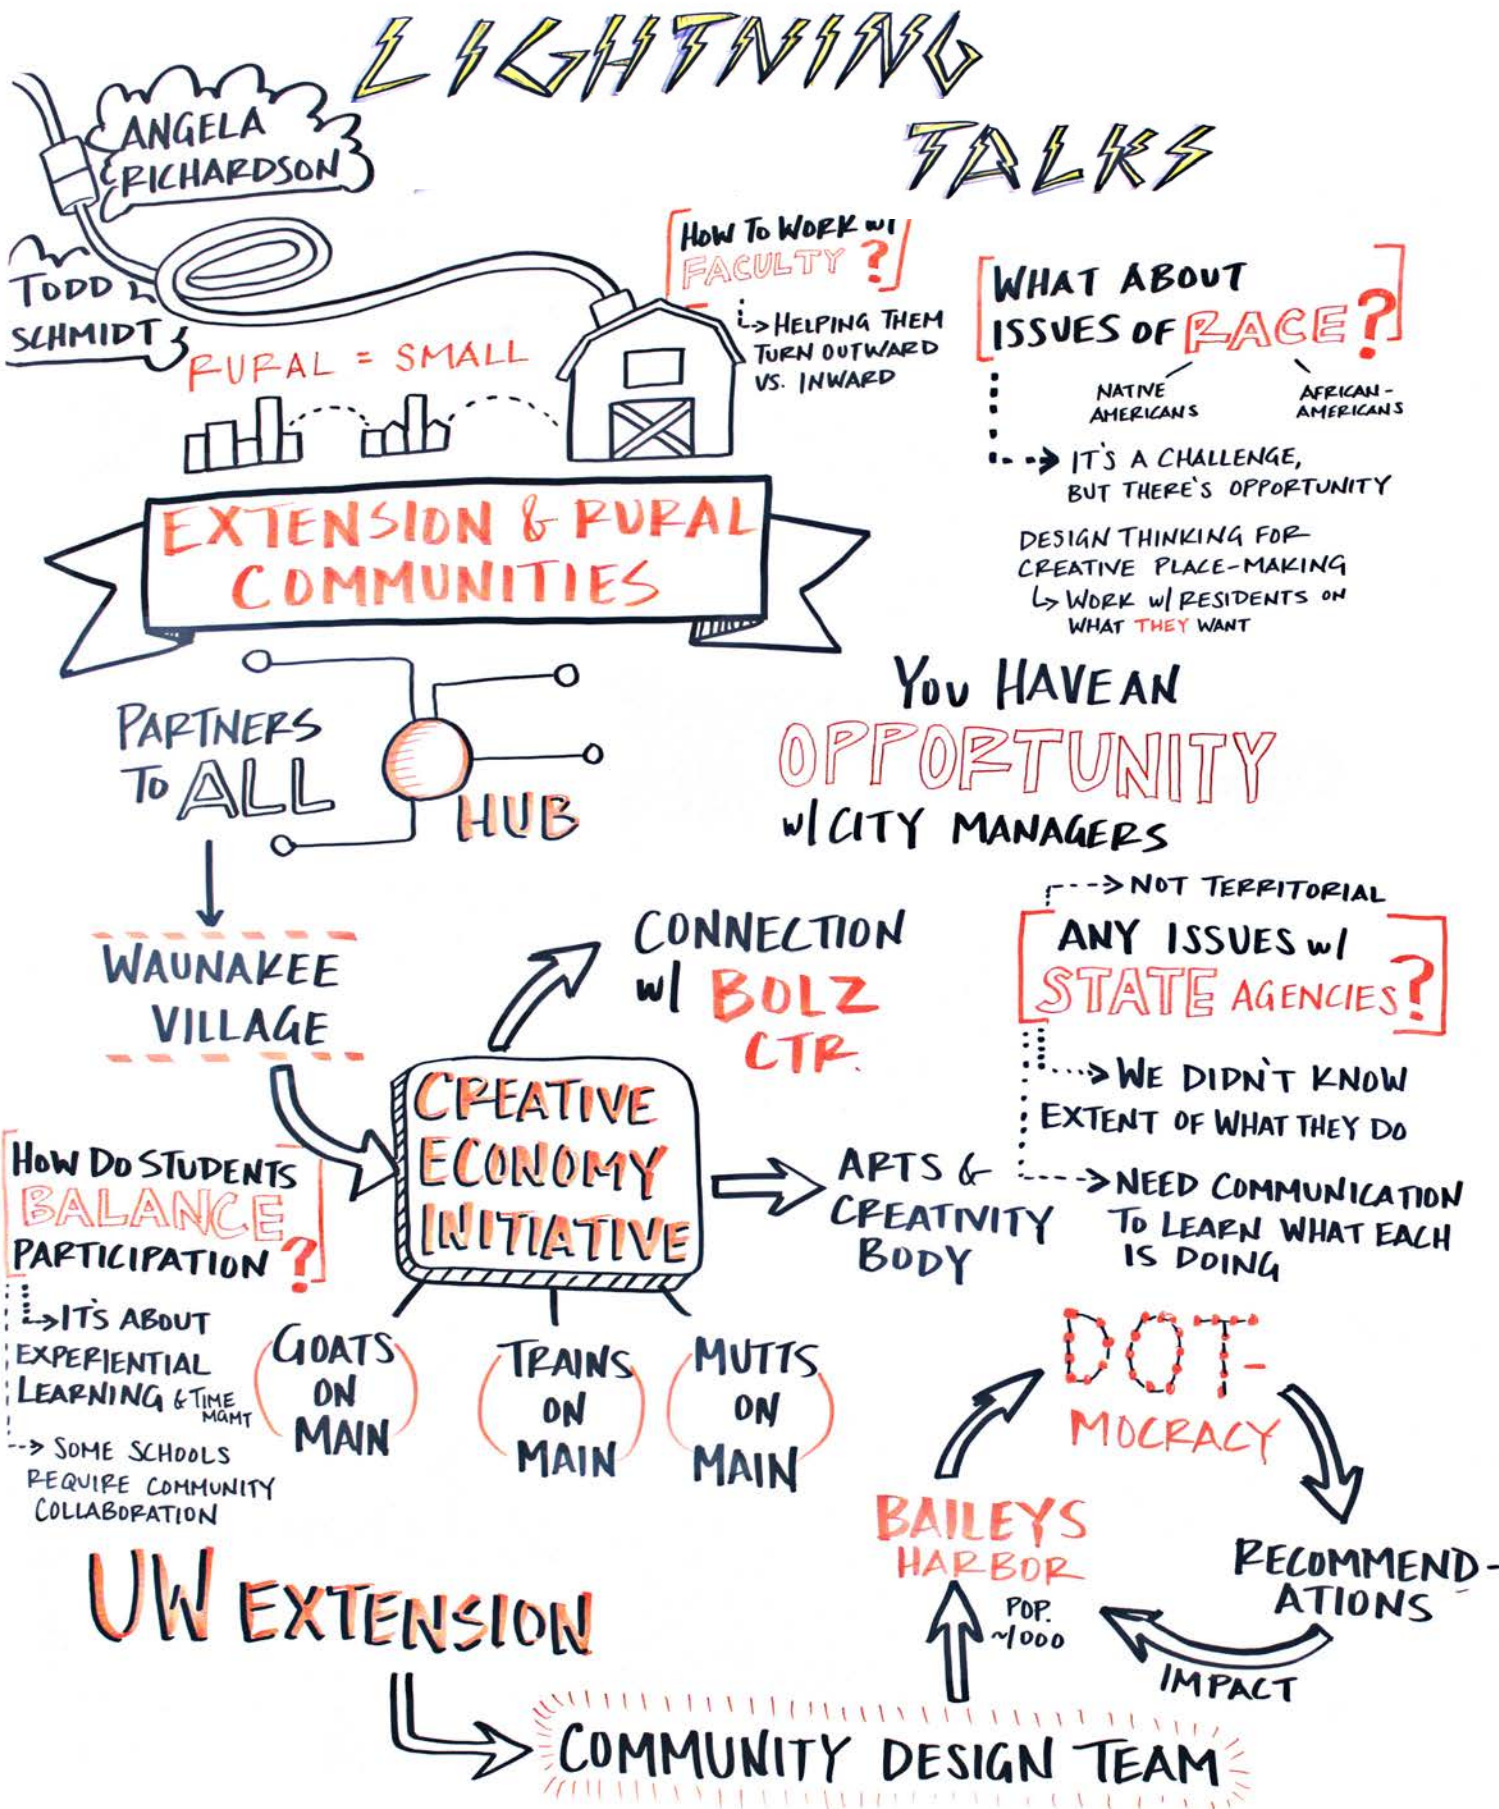 LIGHTNING
TALKS
ANGELA
RICHARDSON
TODD
SCHMIDT
RURAL = SMALL
HOW TO WORK w/
FACULTY?
HELPING THEM
TURN OUTWARD
VS. INWARD
WHAT ABOUT
ISSUES OF RACE?
NATIVE
AMERICANS
AFRICAN-
AMERICANS
IT'S A CHALLENGE,
BUT THERE'S OPPORTUNITY
DESIGN THINKING FOR
CREATIVE PLACE-MAKING
WORK w/ RESIDENTS ON
WHAT THEY WANT
EXTENSION & RURAL
COMMUNITIES
PARTNERS
TO ALL
HUB
YOU HAVE AN
OPPORTUNITY
w/ CITY MANAGERS
WAUNAKEE
VILLAGE
CONNECTION
w/ BOLZ
CTR.
NOT TERRITORIAL
ANY ISSUES w/
STATE AGENCIES?
WE DIDN'T KNOW
EXTENT OF WHAT THEY DO
NEED COMMUNICATION
TO LEARN WHAT EACH
IS DOING
CREATIVE
ECONOMY
INITIATIVE
ARTS &
CREATIVITY
BODY
HOW DO STUDENTS
BALANCE
PARTICIPATION?
IT'S ABOUT
EXPERIENTIAL
LEARNING & TIME
MGMT
SOME SCHOOLS
REQUIRE COMMUNITY
COLLABORATION
GOATS
ON
MAIN
TRAINS
ON
MAIN
MUTTS
ON
MAIN
DOT-
MOCRACY
BAILEYS
HARBOR
POP.
~1000
RECOMMEND-
ATIONS
IMPACT
UW EXTENSION
COMMUNITY DESIGN TEAM